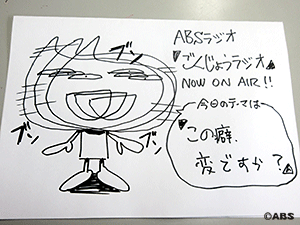 ABSラジオ
『ごくじょうラジオ』
NOW ON AIR!!
今日のテーマは
この癖、
変ですか?
ブン
ブン
ブン
ブン
©ABS